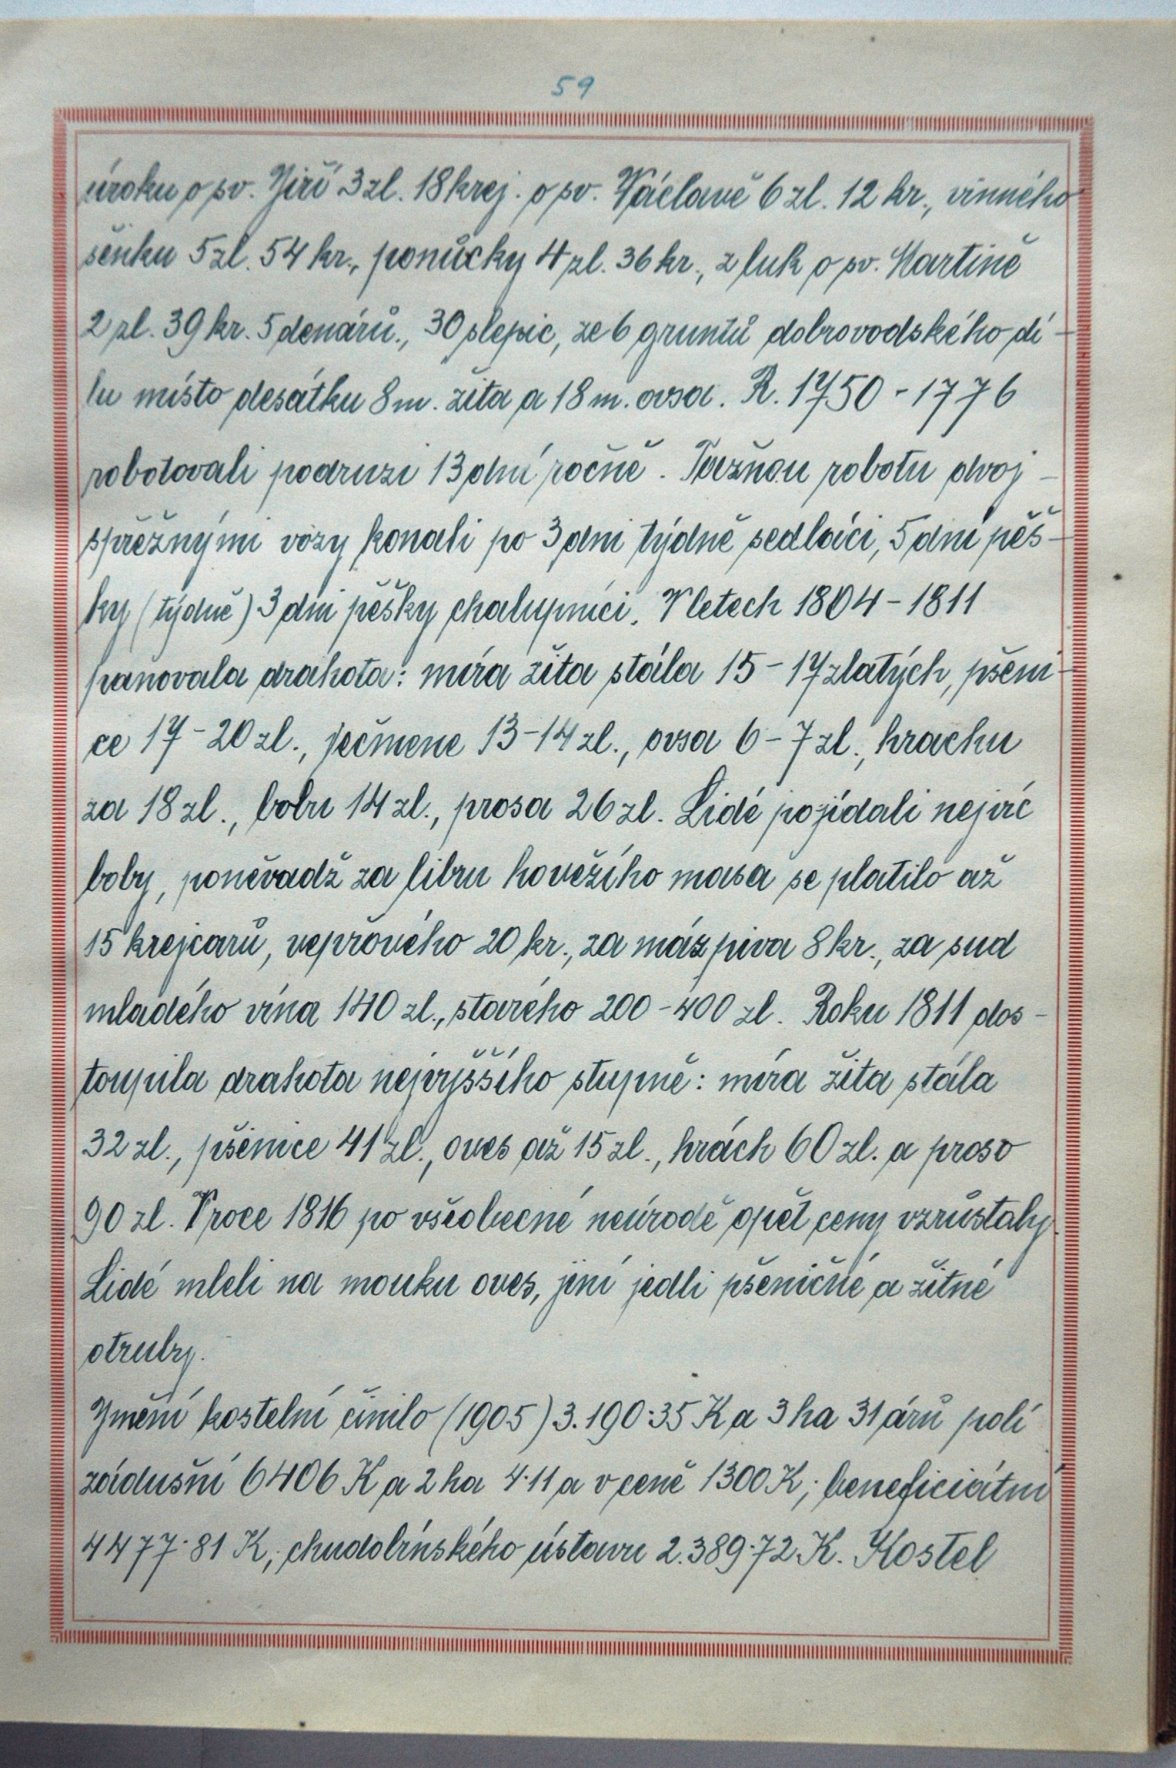 59
úroku o sv. Jiří 3 zl. 18 krej. o sv. Václavě 6 zl. 12 kr., vinného
šenku 5 zl. 54 kr., ponůcky 4 zl. 36 kr., z luk o sv. Martině
2 zl. 39 kr. 5 denárů., 30 slepic, ze 6 gruntů dobrovodského dí-
lu místo desátku 8 m. žita a 18 m. ovsa. R. 1750 - 1776
robotovali podruzi 13 dní ročně. Tažnou robotu dvoj-
spřežnými vozy konali po 3 dni týdně sedláci, 5 dní pěš-
ky (týdně) 3 dni pěšky chalupníci. V letech 1804 - 1811
panovala drahota: míra žita stála 15 - 17 zlatých, pšeni-
ce 17 - 20 zl., ječmene 13 - 14 zl., ovsa 6 - 7 zl., hrachu
za 18 zl., bobu 14 zl., prosa 26 zl. Lidé pojídali nejvíc
boby, poněvadž za libru hovězího masa se platilo až
15 krejcarů, vepřového 20 kr., za máz piva 8 kr., za sud
mladého vína 140 zl., starého 200 - 400 zl. Roku 1811 dos-
toupila drahota nejvyššího stupně: míra žita stála
32 zl., pšenice 41 zl., oves až 15 zl., hrách 60 zl. a proso
90 zl. V roce 1816 po všeobecné neúrodě opět ceny vzrůstaly.
Lidé mleli na mouku oves, jiní jedli pšeničné a žitné
otruby.
Jmění kostelní činilo (1905) 3.190·35 K a 3 ha 31 árů polí
zádušní 6406 K a 2 ha 4·11 a v ceně 1300 K; beneficiátní
4477·81 K; chudobínského ústavu 2.389·72 K. Kostel